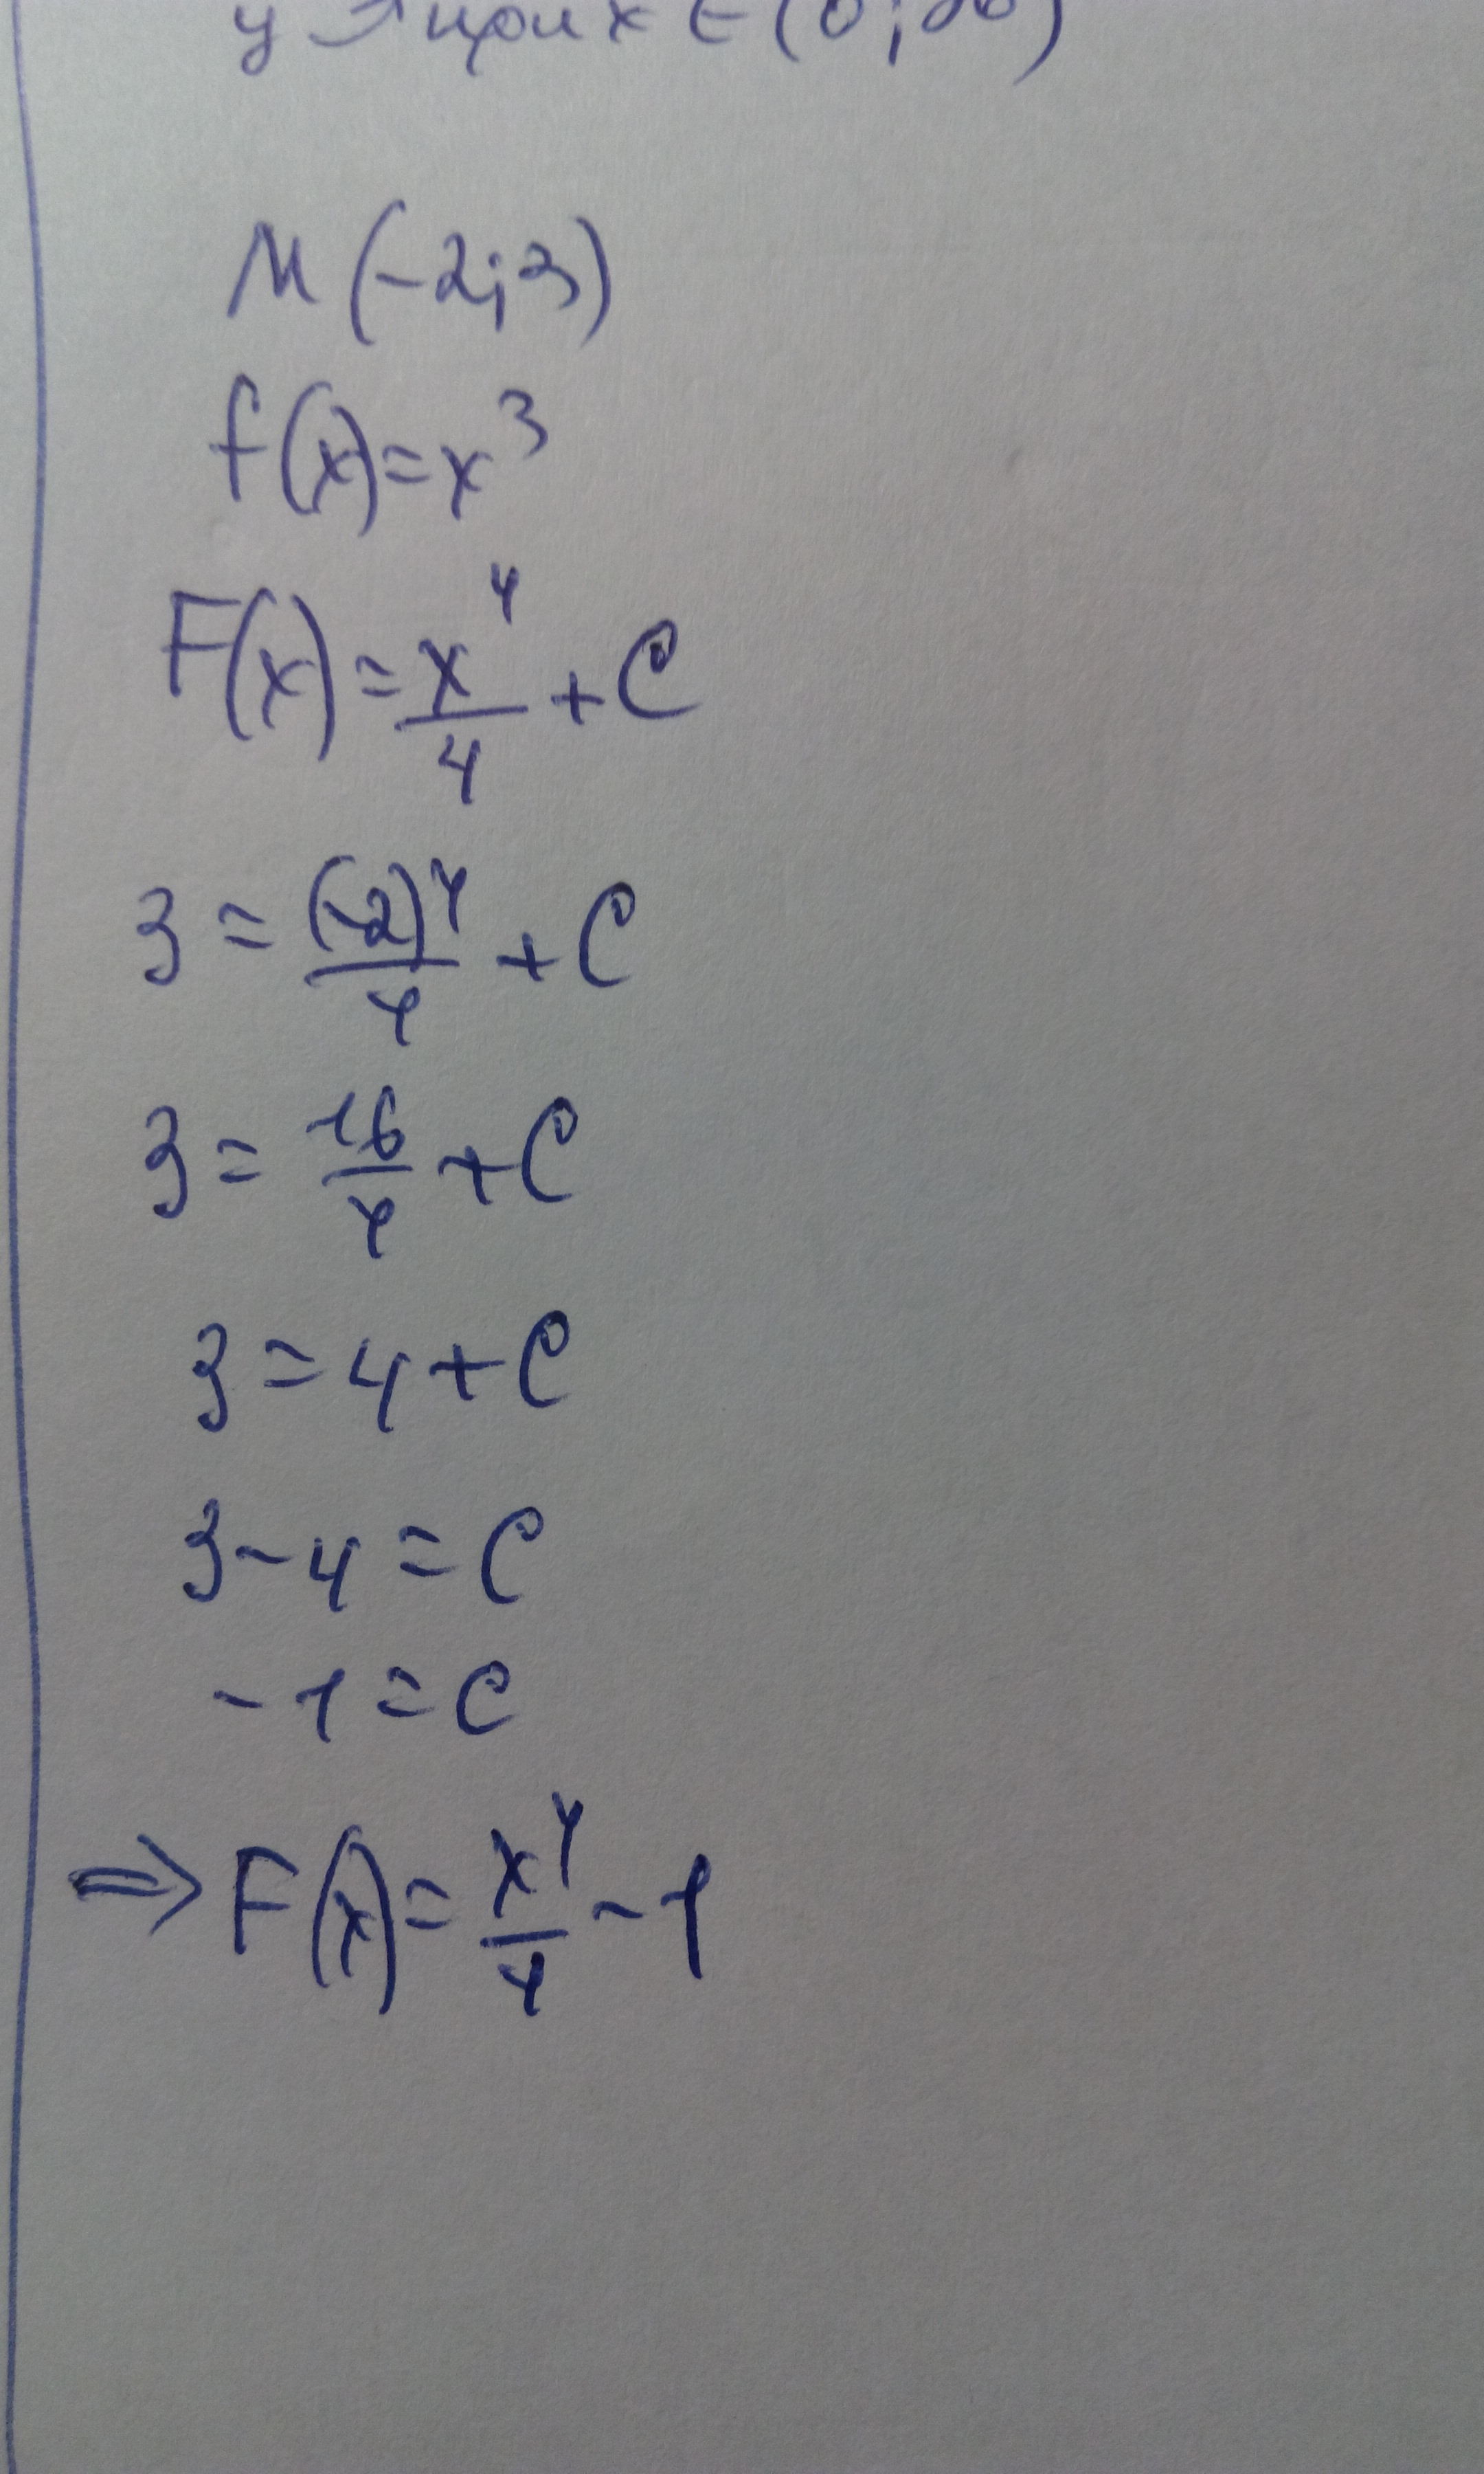 у ↗ при x ∈ (0; ∞)
M (-2; 3)
f(x) = x³
F(x) = x⁴/4 + C
3 = (-2)⁴/4 + C
3 = 16/4 + C
3 = 4 + C
3 - 4 = C
-1 = C
⇒ F(x) = x⁴/4 - 1